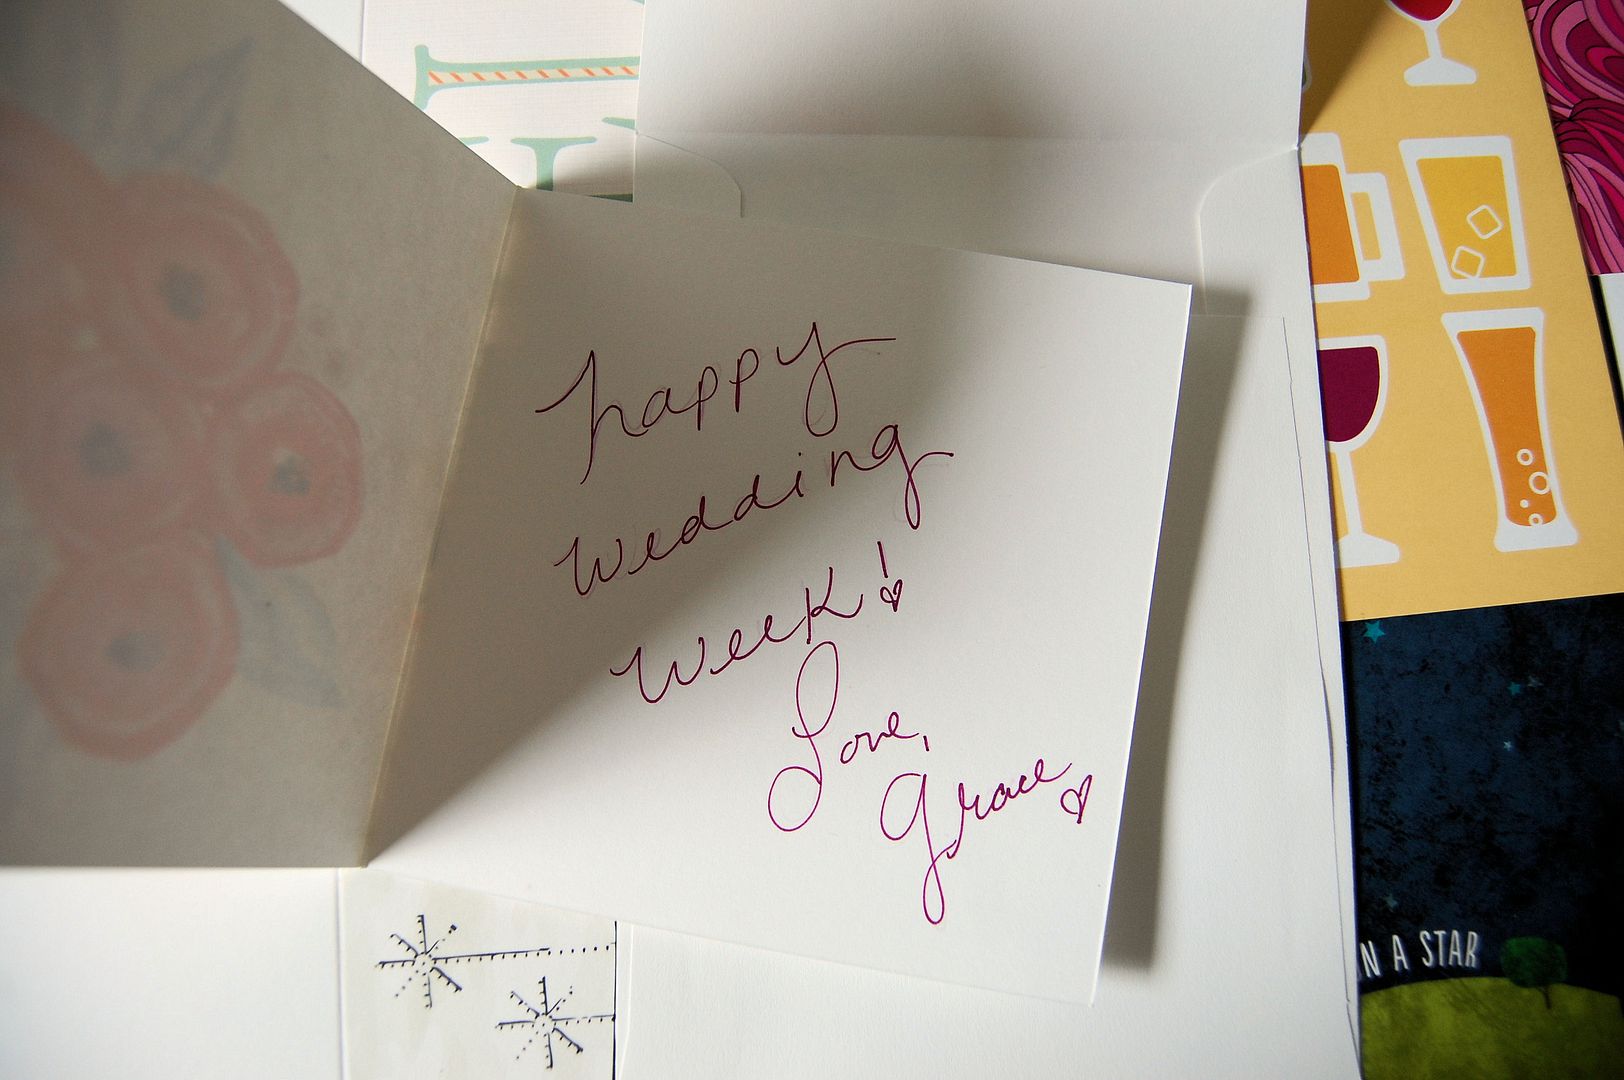 happy
wedding
week!
Love,
grace
N A STAR